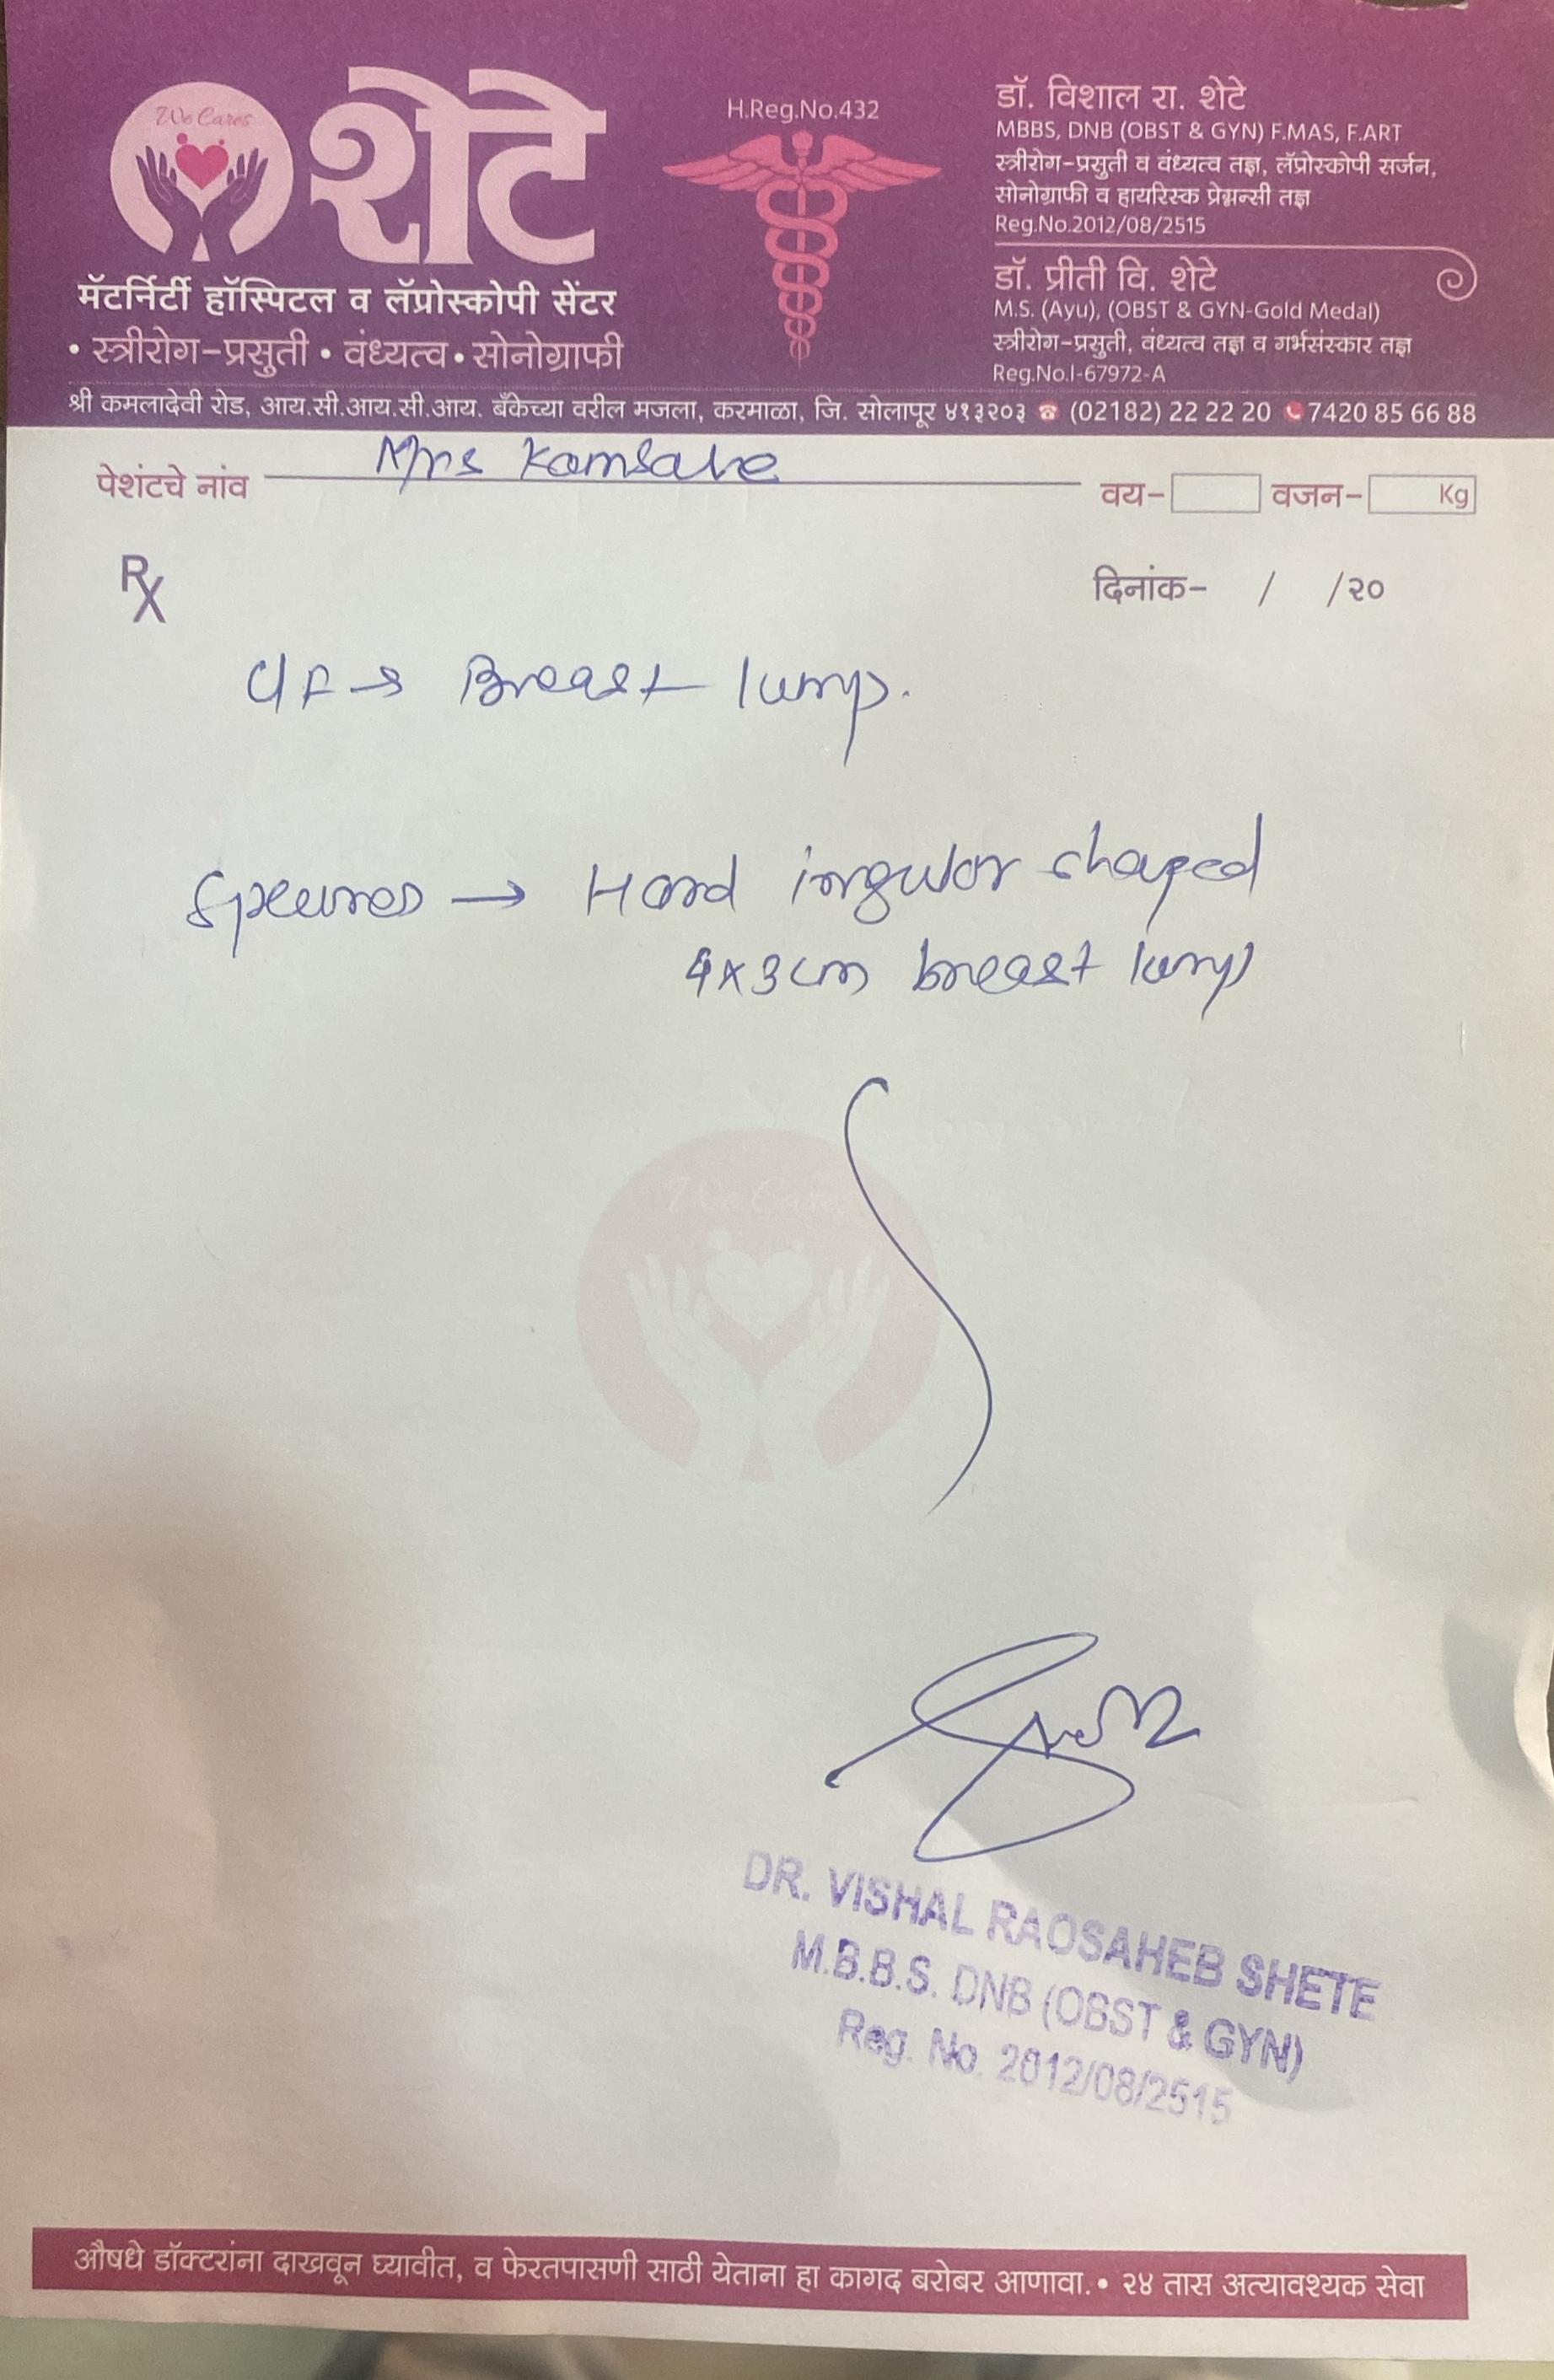 We Cares
शेटे
मॅटर्निटी हॉस्पिटल व लॅप्रोस्कोपी सेंटर
• स्त्रीरोग-प्रसुती • वंध्यत्व • सोनोग्राफी
H.Reg.No.432
डॉ. विशाल रा. शेटे
MBBS, DNB (OBST & GYN) F.MAS, F.ART
स्त्रीरोग-प्रसुती व वंध्यत्व तज्ञ, लॅप्रोस्कोपी सर्जन,
सोनोग्राफी व हायरिस्क प्रेग्नन्सी तज्ञ
Reg.No.2012/08/2515
डॉ. प्रीती वि. शेटे
M.S. (Ayu), (OBST & GYN-Gold Medal)
स्त्रीरोग-प्रसुती, वंध्यत्व तज्ञ व गर्भसंस्कार तज्ञ
Reg.No.I-67972-A
श्री कमलादेवी रोड, आय.सी.आय.सी.आय. बँकेच्या वरील मजला, करमाळा, जि. सोलापूर ४१३२०३ ☎ (02182) 22 22 20 7420 85 66 88
पेशंटचे नांव Mrs वय- वजन- Kg
Rx दिनांक- / /२०
→ Breast lump.
→ Hard irregular shaped
4x3cm breast lump
We Cares
DR. VISHAL RAOSAHEB SHETE
M.B.B.S. DNB (OBST & GYN)
Reg. No. 2012/08/2515
औषधे डॉक्टरांना दाखवून घ्यावीत, व फेरतपासणी साठी येताना हा कागद बरोबर आणावा. • २४ तास अत्यावश्यक सेवा